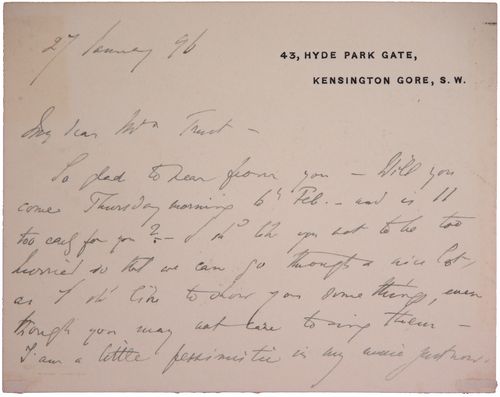 27 January 96
43, HYDE PARK GATE,
KENSINGTON GORE, S. W.
My dear Mrs Trust –
So glad to hear from you – Will you
come Thursday morning 6th Feb. – and is 11
too early for you? – I shd like you not to be too
hurried so that we can go through a nice lot,
as I shd like to show you some things, even
though you may not care to sing them –
I am a little pessimistic in my music just now.